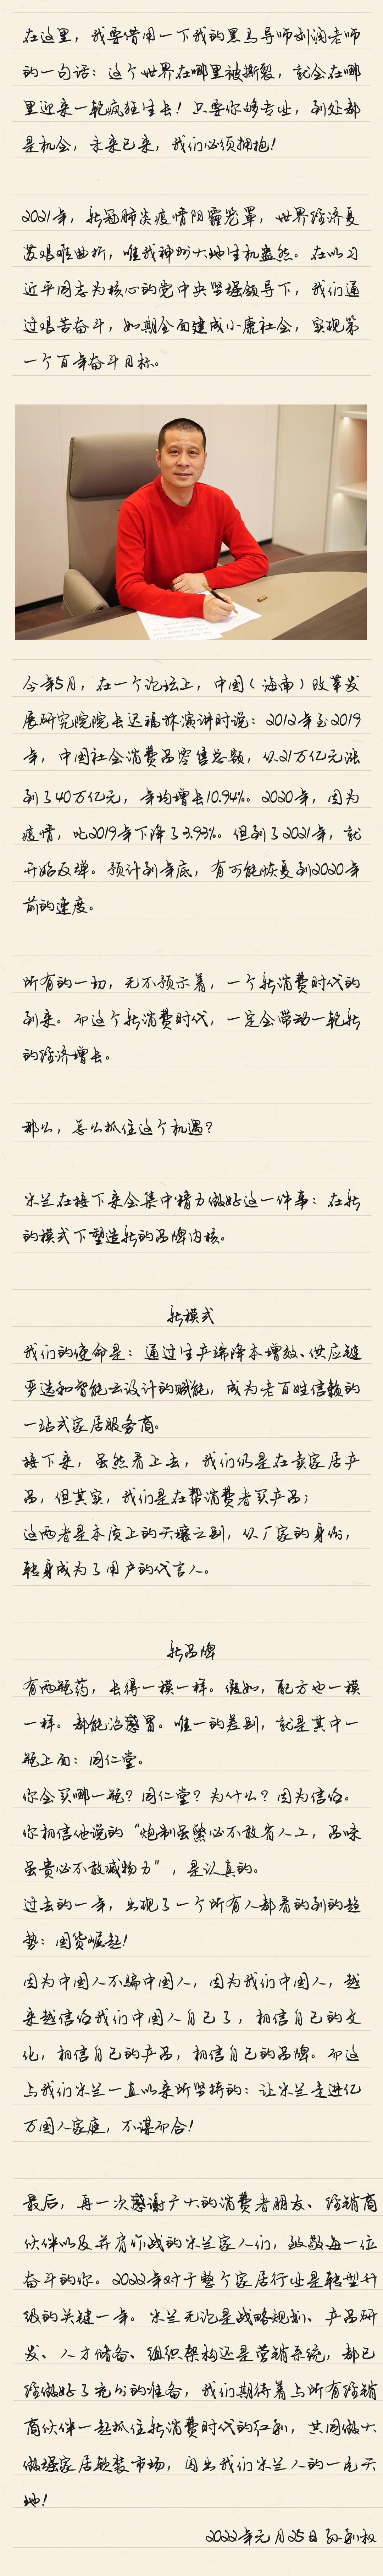 在这里，我要借用一下我的黑马导师刘润老师
的一句话：这个世界在哪里被撕裂，就会在哪
里迎来一轮疯狂生长！只要你够专业，到处都
是机会，未来已来，我们必须拥抱！
2021年，新冠肺炎疫情阴霾笼罩，世界经济复
苏艰难曲折，唯我神州大地生机盎然。在以习
近平同志为核心的党中央坚强领导下，我们通
过艰苦奋斗，如期全面建成小康社会，实现第
一个百年奋斗目标。
今年5月，在一个论坛上，中国（海南）改革发
展研究院院长迟福林演讲时说：2012年至2019
年，中国社会消费品零售总额，从21万亿元涨
到了40万亿元，年均增长10.94%。2020年，因为
疫情，比2019年下降了3.93%。但到了2021年，就
开始反弹。预计到年底，有可能恢复到2020年
前的速度。
所有的一切，无不预示着，一个新消费时代的
到来。而这个新消费时代，一定会带动一轮新
的经济增长。
那么，怎么抓住这个机遇？
米兰在接下来会集中精力做好这一件事：在新
的模式下塑造新的品牌内核。
新模式
我们的使命是：通过生产端降本增效、供应链
严选和智能云设计的赋能，成为老百姓信赖的
一站式家居服务商。
接下来，虽然看上去，我们仍是在卖家居产
品，但其实，我们是在帮消费者买产品；
这两者是本质上的天壤之别，从厂家的身份，
转身成为了用户的代言人。
新品牌
有两瓶药，长得一模一样。假如，配方也一模
一样。都能治感冒。唯一的差别，就是其中一
瓶上面：同仁堂。
你会买哪一瓶？同仁堂？为什么？因为信伯。
你相信他说的“炮制虽繁必不敢省人工，品味
虽贵必不敢减物力”，是认真的。
过去的一年，出现了一个所有人都看的到的趋
势：国货崛起！
因为中国人不骗中国人，因为我们中国人，越
来越信伯我们中国人自己了，相信自己的文
化，相信自己的产品，相信自己的品牌。而这
与我们米兰一直以来所坚持的：让米兰走进亿
万国人家庭，不谋而合！
最后，再一次感谢广大的消费者朋友、经销商
伙伴以及并肩作战的米兰家人们，致敬每一位
奋斗的你。2022年对于整个家居行业是转型升
级的关键一年。米兰无论是战略规划、产品研
发、人才储备、组织架构还是营销系统，都已
经做好了充分的准备，我们期待着与所有经销
商伙伴一起抓住新消费时代的红利，共同做大
做强家居软装市场，闯出我们米兰人的一片天
地！
2022年元月25日 孙利权